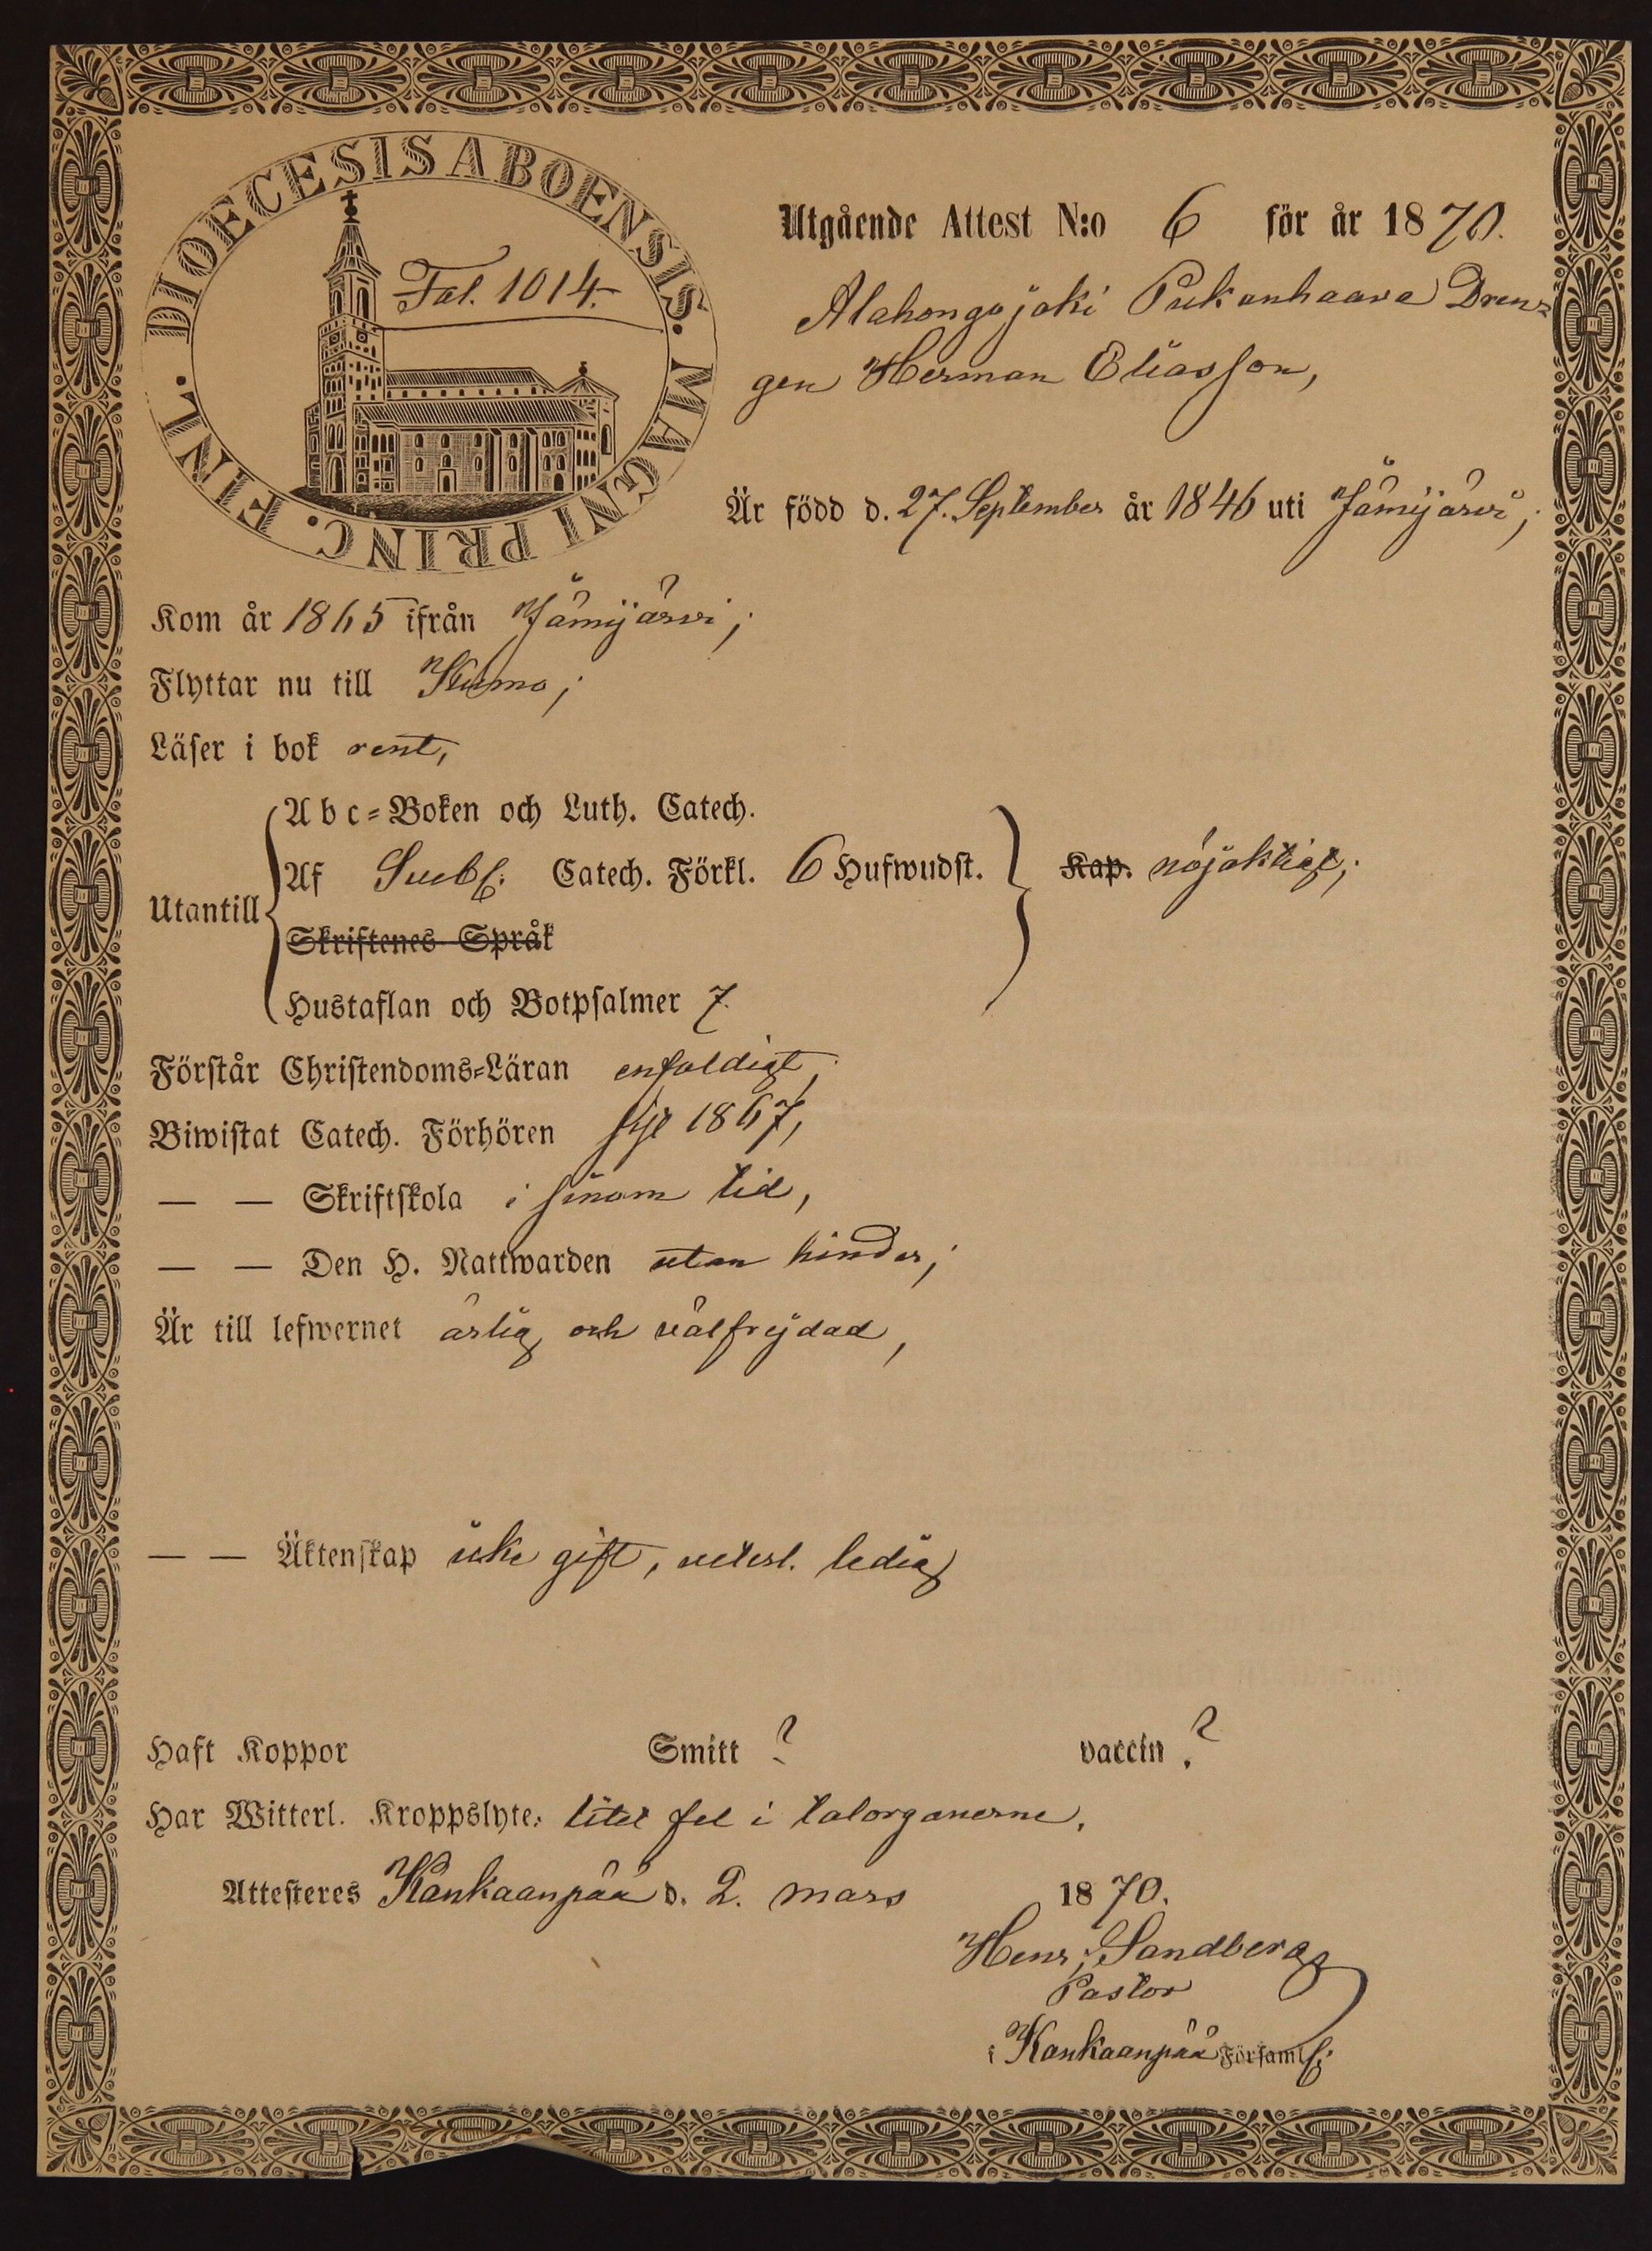 DIOECESIS ABOENSIS. MAGNI PRINC. FINL.
Fol. 1014.
Utgående Attest N:o 6 för år 1870.
Alahongojoki Pukanhaava Dren=
gen Herman Eliasson,
Är född d. 27. September år 1846 uti Jämijärvi;
Kom år 1865 ifrån Jämijärvi;
Flyttar nu till Kumo;
Läser i bok rent,
Utantill
Abc=Boken och Luth. Catech.
Af Sveb. Catech. Förkl. 6 Hufwudst.
Kap. nöjaktigt;
Skriftenes Språk
Hustaflan och Botpsalmer 7.
Förstår Christendoms=Läran enfaldigt,
Biwistat Catech. Förhören 1867,
— — Skriftskola i sinom tid,
— — Den H. Nattwarden utan hinder;
Är till lefwernet ärlig och välfrejdad,
— — Äktenskap icke gift, veterl. ledig
Haft Koppor Smitt ? vaccin ?
Har Witterl. Kroppslyte: litet fel i talorganerne.
Attesteres Kankaanpää d. 2. mars 1870.
Henr. Sandberg
Pastor
i Kankaanpää Församl.